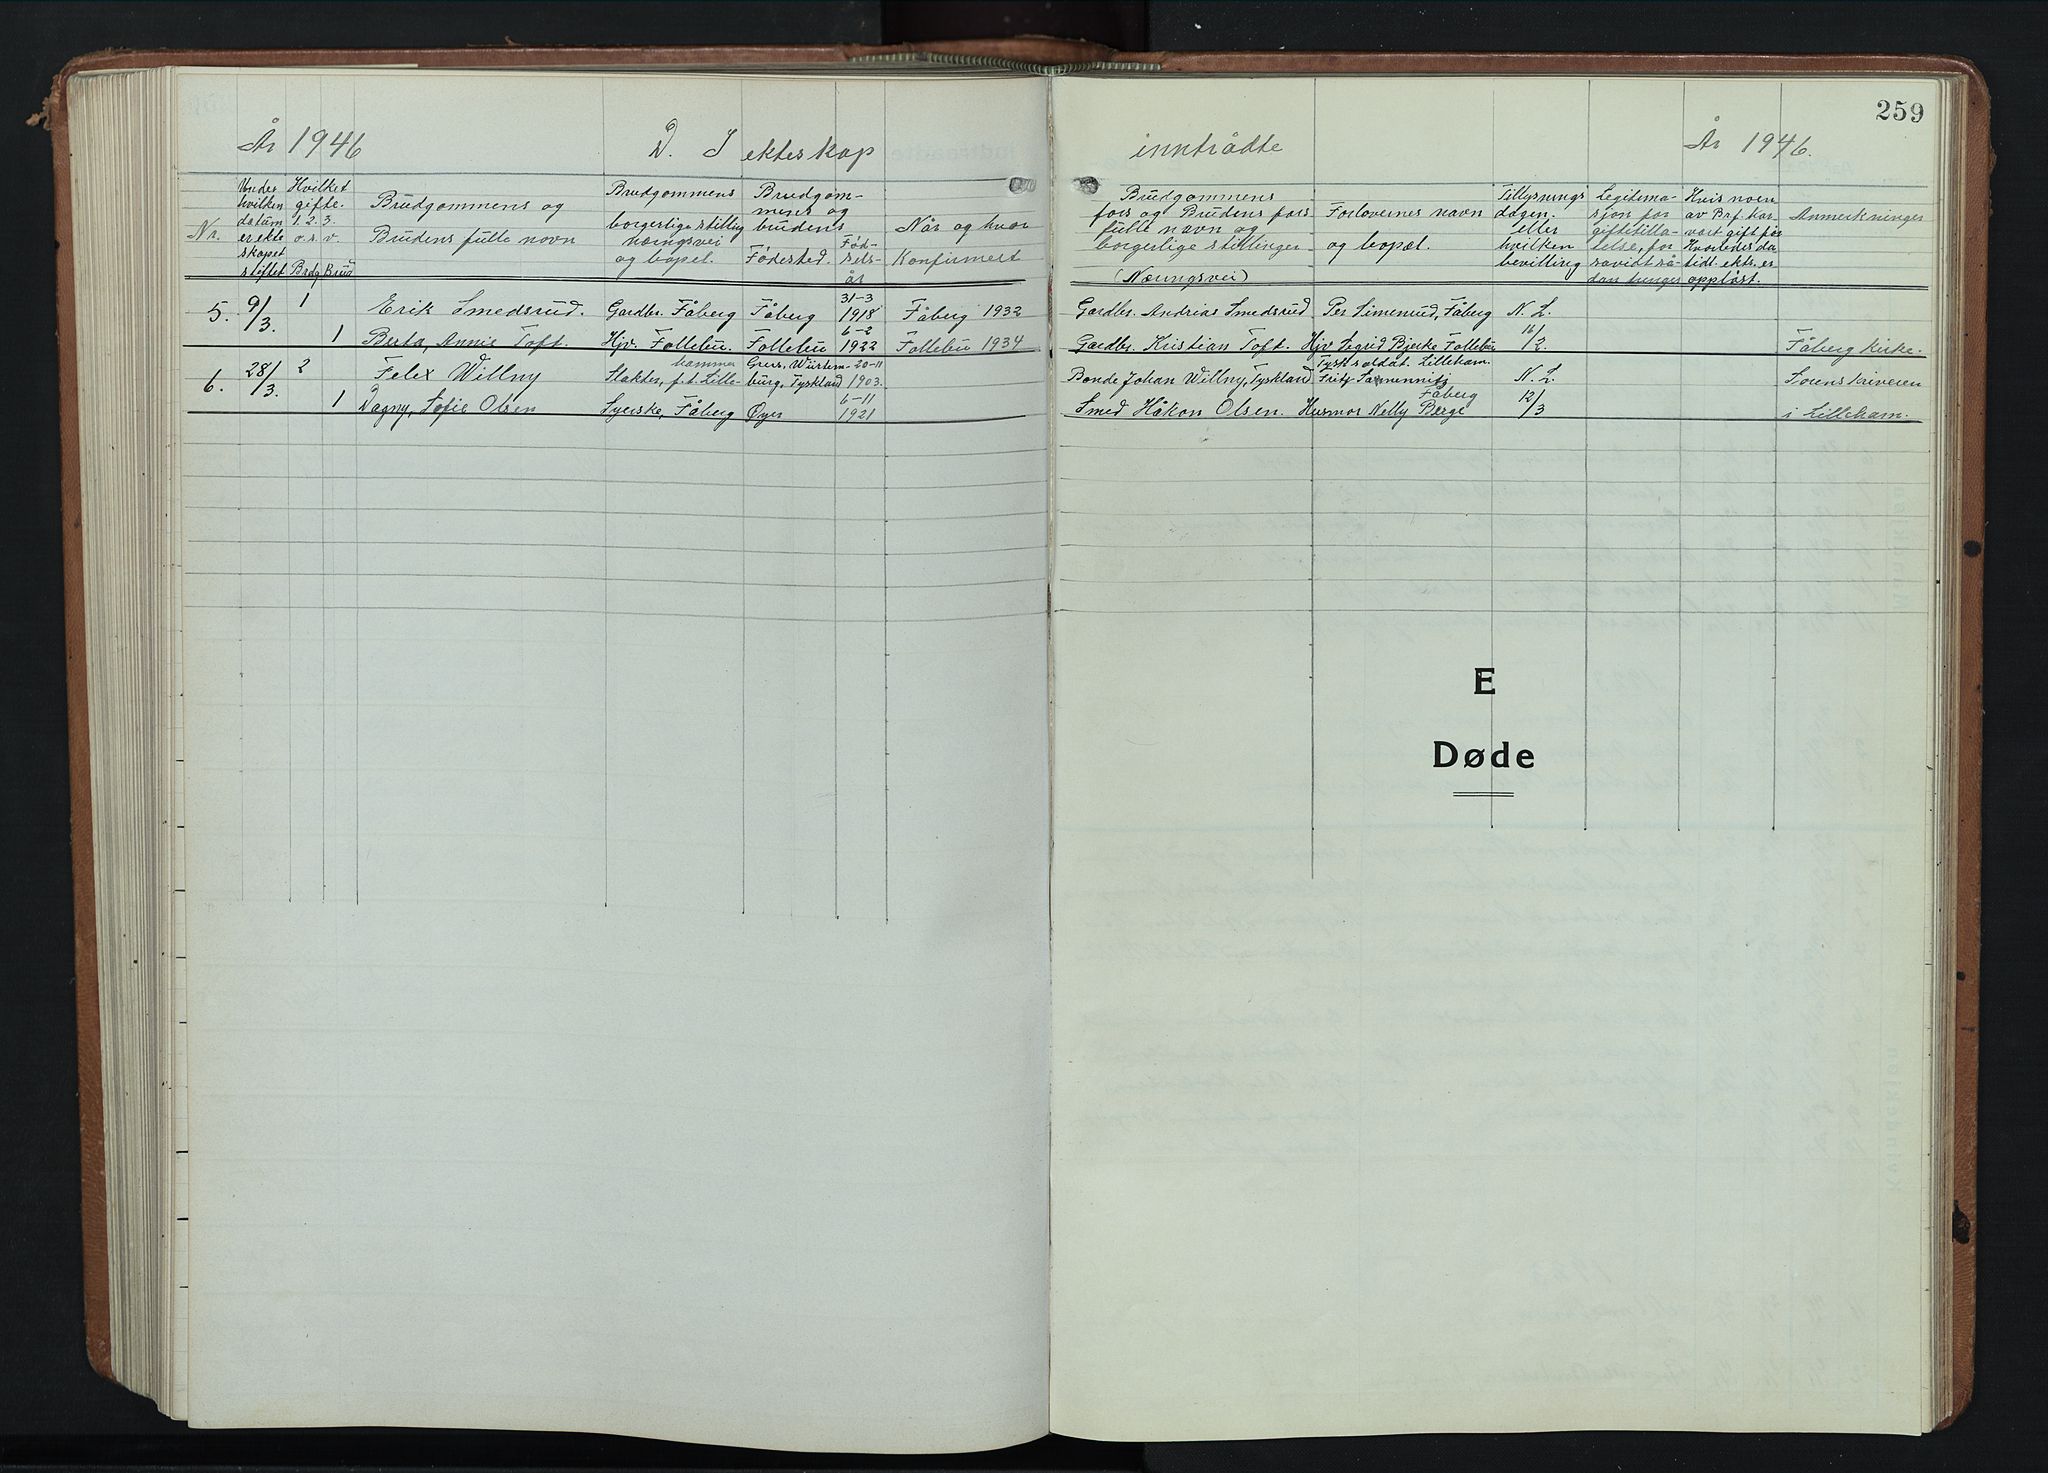 259
År 1946
D. I ekteskap
inntrådte
År 1946.
Nr.
Under hvilken datum er ekteskapet stiftet
Hvilket gifte. 1. 2. 3. o.s.v. Brdg Brud
Brudgommens og Brudens fulle navn
Brudgommens borgerlige stilling næringsvei og bopel.
Brudgommens og brudens Fødested.
Fødselsår
Når og hvor Konfirmert
Brudgommens fars og Brudens fars fulle navn og borgerlige stillinger (Næringsvei)
Forlovernes navn og bopæl.
Tillysnings dagen. eller hvilken bevilling
Legitimasjon for giftetillatelse, for såvidt sådan trenges
Hvis noen av Brf. har vært gift før Hvorledes da tidl. ekts. er oppløst.
Anmerkninger
5. 9/3. 1 Erik Smedsrud. Gardbr. Fåberg Fåberg 31-3 1918 Fåberg 1932 Gardbr. Andrias Smedsrud Per Simenrud, Fåberg N. L.
1 Berta, Annie Toft. Hjv. Follebu. Follebu 6-2 1922 Follebu 1934 Gardbr. Kristian Toft. Hjv Sigrid Bjerke Follebu 16/2. Fåberg kirke.
6. 28/3. 2 Felex Willny Slakter, f.t. Lillehammer Grers. Würtemburg, Tyskland 20-11 1903. Bonde Johan Willny, Tyskland Tysk soldat. Lilleham. Fritz N. L. Sorenskriveren
1 Dagny, Sofie Olsen Syerske, Fåberg Øyer 6-11 1921 Smed Håkon Olsen. Husmor Nelly Berge Fåberg 12/3 i Lilleham.
E
Døde